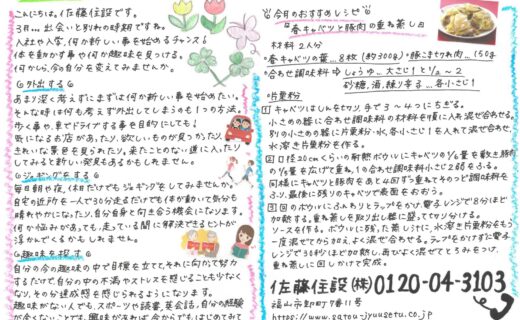 こんにちは。佐藤住設です。
3月…出会いと別れの時期ですね。
入社や入学、何か新しい事を始めるチャンス！
体を動かす事や何か趣味を見つける。
何かから、今の自分を変えてみませんか。
外出する
あまり深く考えずにまずは何か新しい事を始めたい。
そんな時は何も考えず外出してしまうのも1つの方法。
歩く事や、車でドライブする事を目的にしても
気になるお店があったり、欲しいものが見つかったり、
きれいな景色を見られたり。来たことのない道に入ったり
してみると新しい発見もあるかもしれません。
ジョギングをする
毎日朝や夜、休日だけでもジョギングをしてみませんか。
自宅の近所を一人で30分走るだけでも体が動いて気分も
晴れやかになったり、自分自身と向き合う機会になります。
何か悩みがあっても、走っている間に解決できるヒントが
浮かんでくるかもしれません。
趣味を探す
自分の今の趣味の中で目標を立てて、それに向けて努力
するだけで、自分の中の不満やストレスを感じることも少なく
なり、その分達成感を感じられるようになります。
趣味がない人でも、スポーツや読書、英会話。自分の経験
が全くないことでも、興味があれば、今からでもはじめてみて
今月のおすすめレシピ
春キャベツと豚肉の重ね蒸し
材料 2人分
・春キャベツの葉…8枚(約300g) ・豚こま切れ肉…150g
・合わせ調味料 しょうゆ…大さじ1と1/2～2
砂糖、酒、練り辛子…各小さじ1
・片栗粉
1 キャベツはしんをそぎとり、手で3～4つにちぎる。
小さめの器に合わせ調味料の材料を順に入れ混ぜ合わせる。
別の小さめの器に片栗粉・水、各小さじ1を入れて混ぜ合わせ、
水溶き片栗粉を作る。
2 口径20cmくらいの耐熱ボウルにキャベツの1/6量を敷き、豚肉
の1/5量を広げて重ね、1の合わせ調味料小さじ2弱をふる。
同様にキャベツと豚肉をあと4回ずつ重ねてそのつど調味料を
ふり、最後に残りのキャベツで表面をおおう。
3 2のボウルにふんわりとラップをかけ、電子レンジで8分ほど
加熱する。重ね蒸しを取り出し器に盛って切り分ける。
ソースを作る。ボウルに残った蒸し汁に、水溶き片栗粉をもう
一度混ぜてから加え、よく混ぜ合わせる。ラップをかけずに電子
レンジで30秒ほど加熱し、再びよく混ぜてとろみをつけ、
重ね蒸しに回しかけて完成。
佐藤住設(株)0120-04-3103
福山市
https://www.satou-jyuusetu.co.jp